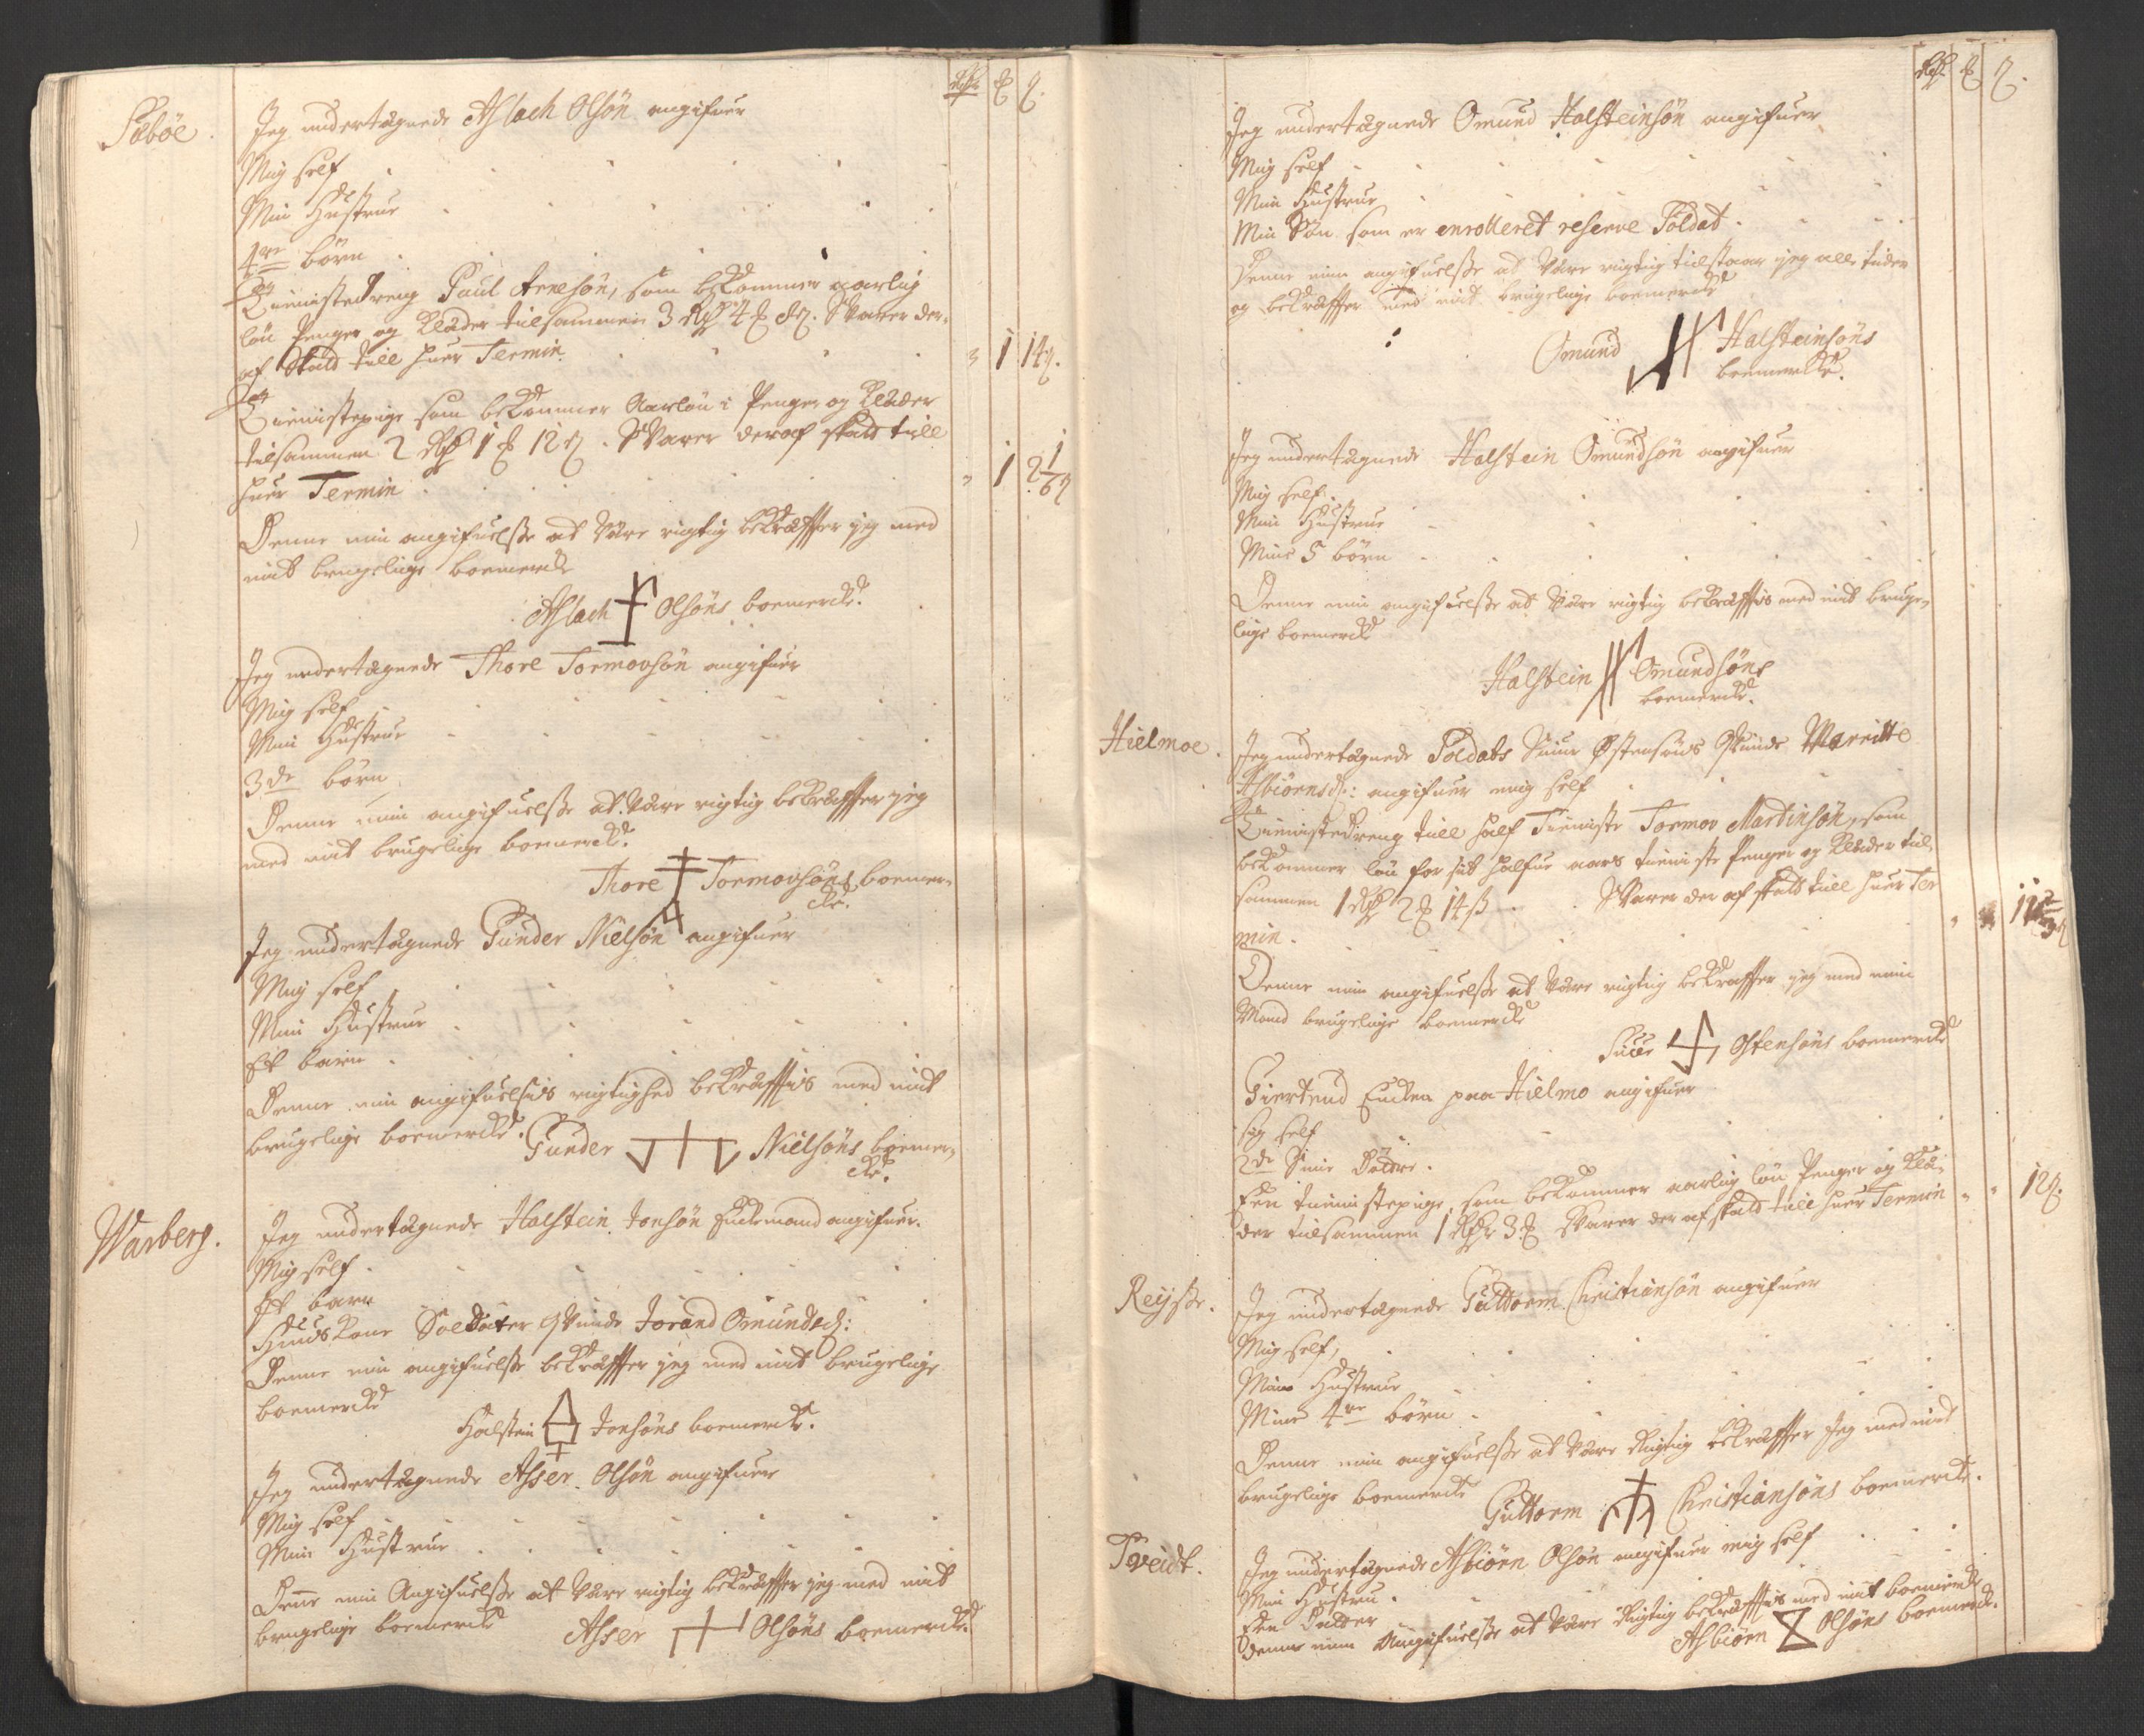 Rdr ℔ ß.
Sæbøe.
Jeg undertægnede Aslach Olsøn angifuer
Mig self
Min Hustrue
4re børn
En Tienistedreng Paul Arnesøn, som bekommer aarlig
løn Penger og Klæder tilsammen 3 Rdr 4 ℔ 8 ß. Svarer der-
af Skatt till huer Termin „ 1 14ß.
En Tienistepige som bekommer Aarløn i Penger og Klæder
tilsammen 2 Rdr 1 ℔ 12 ß. Svarer deraf skatt till
huer Termin „ 1 2 1/6 ß
Denne min angifuelse at være rigtig bekræffter jeg med
mit brugelige boemercke
Aslach Olsøns boemercke.
Jeg undertægnede Thore Tormovsøn angifuer
Mig self
Min Hustrue
3de børn
Denne min angifuelse at være rigtig bekræffter jeg
med mit brugelige boemercke.
Thore Tormovsøns boemer-
cke.
Jeg undertægnede Gunder Nielsøn angifuer
Mig self
Min Hustrue
Et barn
Denne min angifuelsis rigtighed bekræfftis med mit
brugelige boemercke. Gunder Nielsøns boemer-
cke.
Warberg.
Jeg undertægnede Halstein Jonsøn Enckemand angifuer.
Mig self
Et barn
Huuskone Soldater Qvinde Jorand Omundsd:
Denne min angifuelse bekræffter jeg med mit brugelige
boemercke
Halstein Jonsøns boemercke.
Jeg undertægnede Asser Olsøn angifuer
Mig self
Min Hustrue
Denne min Angifuelse at være rigtig bekræffter jeg med mit
brugelige boemercke Asser Olsøns boemercke.
Rdr ℔ ß.
Jeg undertægnede Omund Halsteinsøn angifuer
Mig self
Min Hustrue
Min Søn som er enrolleret reserve Soldat
Denne min angifuelse at være rigtig tilstaar jeg alle tider
og bekræffter med mit brugelige boemercke
Omund Halsteinsøns
boemercke.
Jeg undertægnede Halstein Omundsøn angifuer
Mig self
Min Hustrue
Mine 5 børn
Denne min angifuelse at være rigtig bekræfftis med mit bruge-
lige boemercke
Halstein Omundsøns
boemercke.
Hielmoe.
Jeg undertægnede Soldats Siuur Østensøns Qvinde Marritte
Asbiørnsd: angifuer mig self
En Tienistedreng till half Tieniste Tormov Martinsøn, som
bekommer løn for sit halfue aars tieniste Penger og Klæder til-
sammen 1 Rdr 2 ℔ 14 ß. Svarer der af skatt till huer Ter
min
Denne min angifuelse at være rigtig bekræffter jeg med min
Mand brugelige boemercke
Siuur Østensøns boemercke
Giertrud Encken paa Hielmo angifuer
sig self
2de Sine Døttre.
Een tienistepige, som bekommer aarlig løn Penger og Klæ-
der tilsammen 1 Rdr 3 ℔ svarer der af skatt till huer Termin „ „ 12ß.
Reysse.
Jeg undertægnede Guttorm Christiansøn angifuer
Mig self,
Min Hustrue
Mine 4re børn
Denne min angifuelse at være Rigtig bekræffter Jeg med mit
brugelige boemercke Guttorm Christiansøns boemercke.
Tveidt.
Jeg undertægnede Asbiørn Olsøn angifuer mig self
Min Hustru.
Een Datter
Denne min Angifuelse at være Rigtig bekræfftis med mit boemercke
Asbiørn Olsøns boemercke.